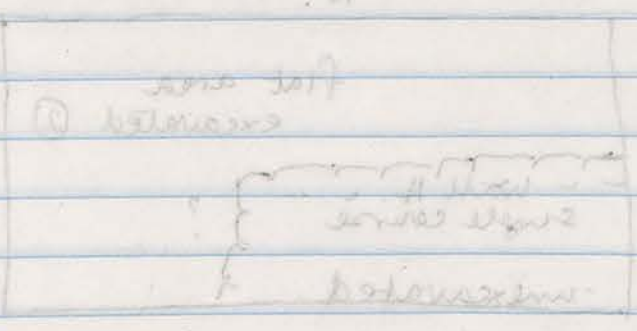 flat area
excavated ①
wall A
single course
unexcavated